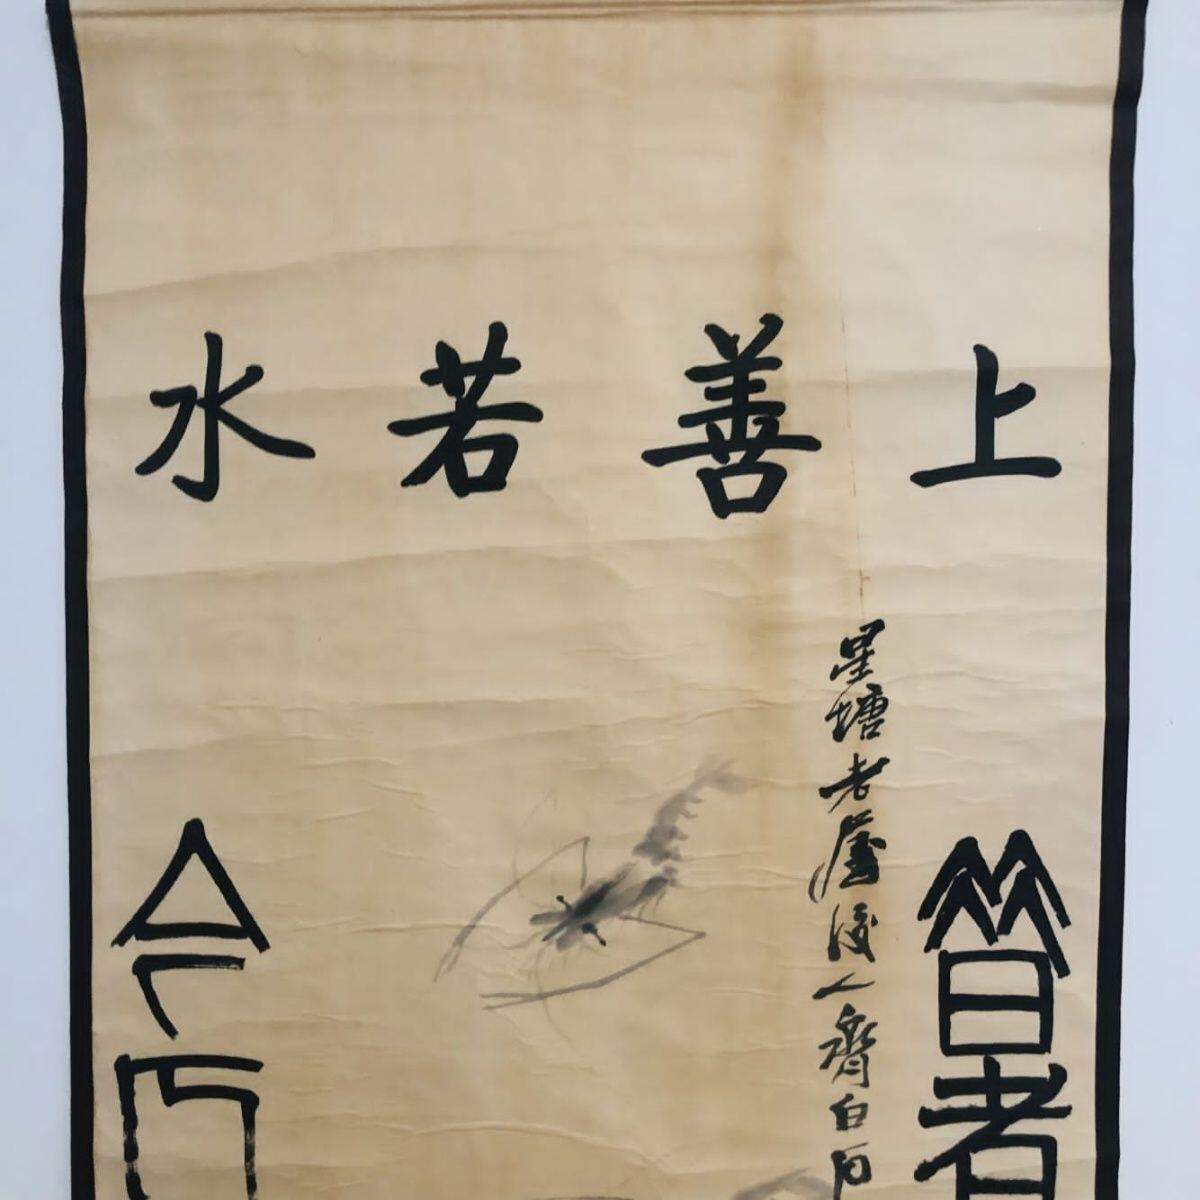 上善若水
昔者
星塘老屋後人齊白石
今